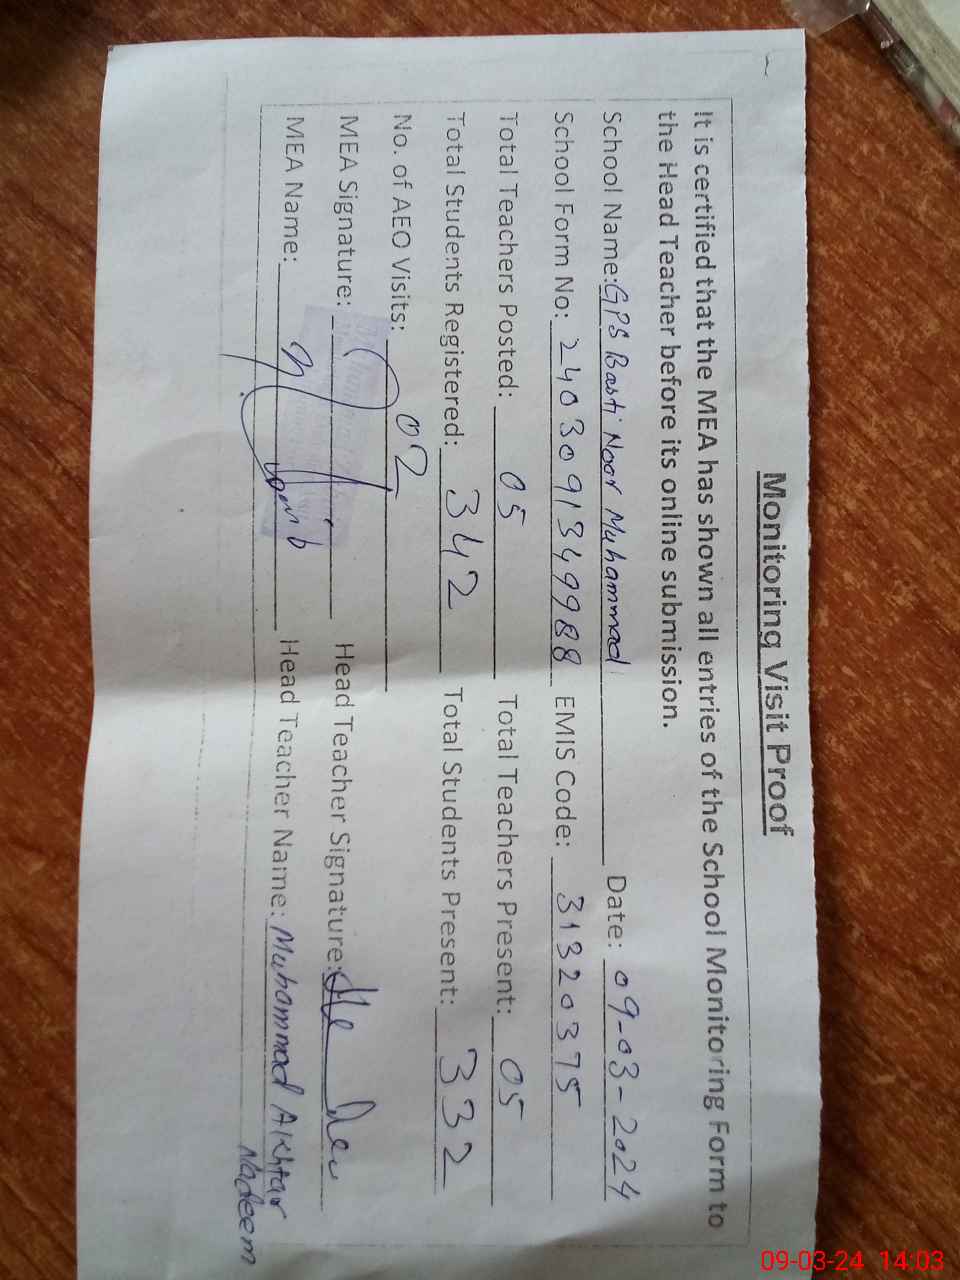 Monitoring Visit Proof
It is certified that the MEA has shown all entries of the School Monitoring Form to
the Head Teacher before its online submission.
School Name: GPS Basti Noor Muhammad Date: 09-03-2024
School Form No: 2403091349988 EMIS Code: 31320375
Total Teachers Posted: 05 Total Teachers Present: 05
Total Students Registered: 342 Total Students Present: 332
No. of AEO Visits: 02
MEA Signature: Head Teacher Signature:
MEA Name: Head Teacher Name: Muhammad Akhtar
Nadeem
09-03-24 14:03